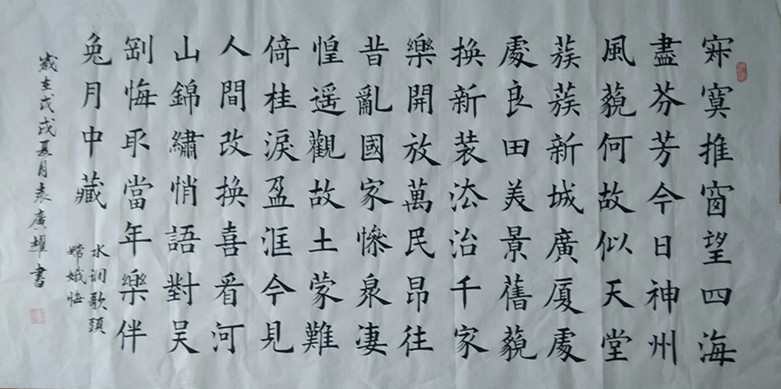 寂寞推窗望四海
盡芬芳今日神州
風藐何故似天堂
蔟蔟新城廣厦處
處良田美景舊藐
换新装法治千家
樂開放萬民昂往
昔亂國家慘泉凄
惶遥觀故土蒙難
倚桂淚盈洭今見
人間改换喜看河
山錦繡悄語對吴
剛悔當年樂伴
兔月中藏
水调歌頭
嫦娥悔
歲在戊戌夏月袁廣耀書